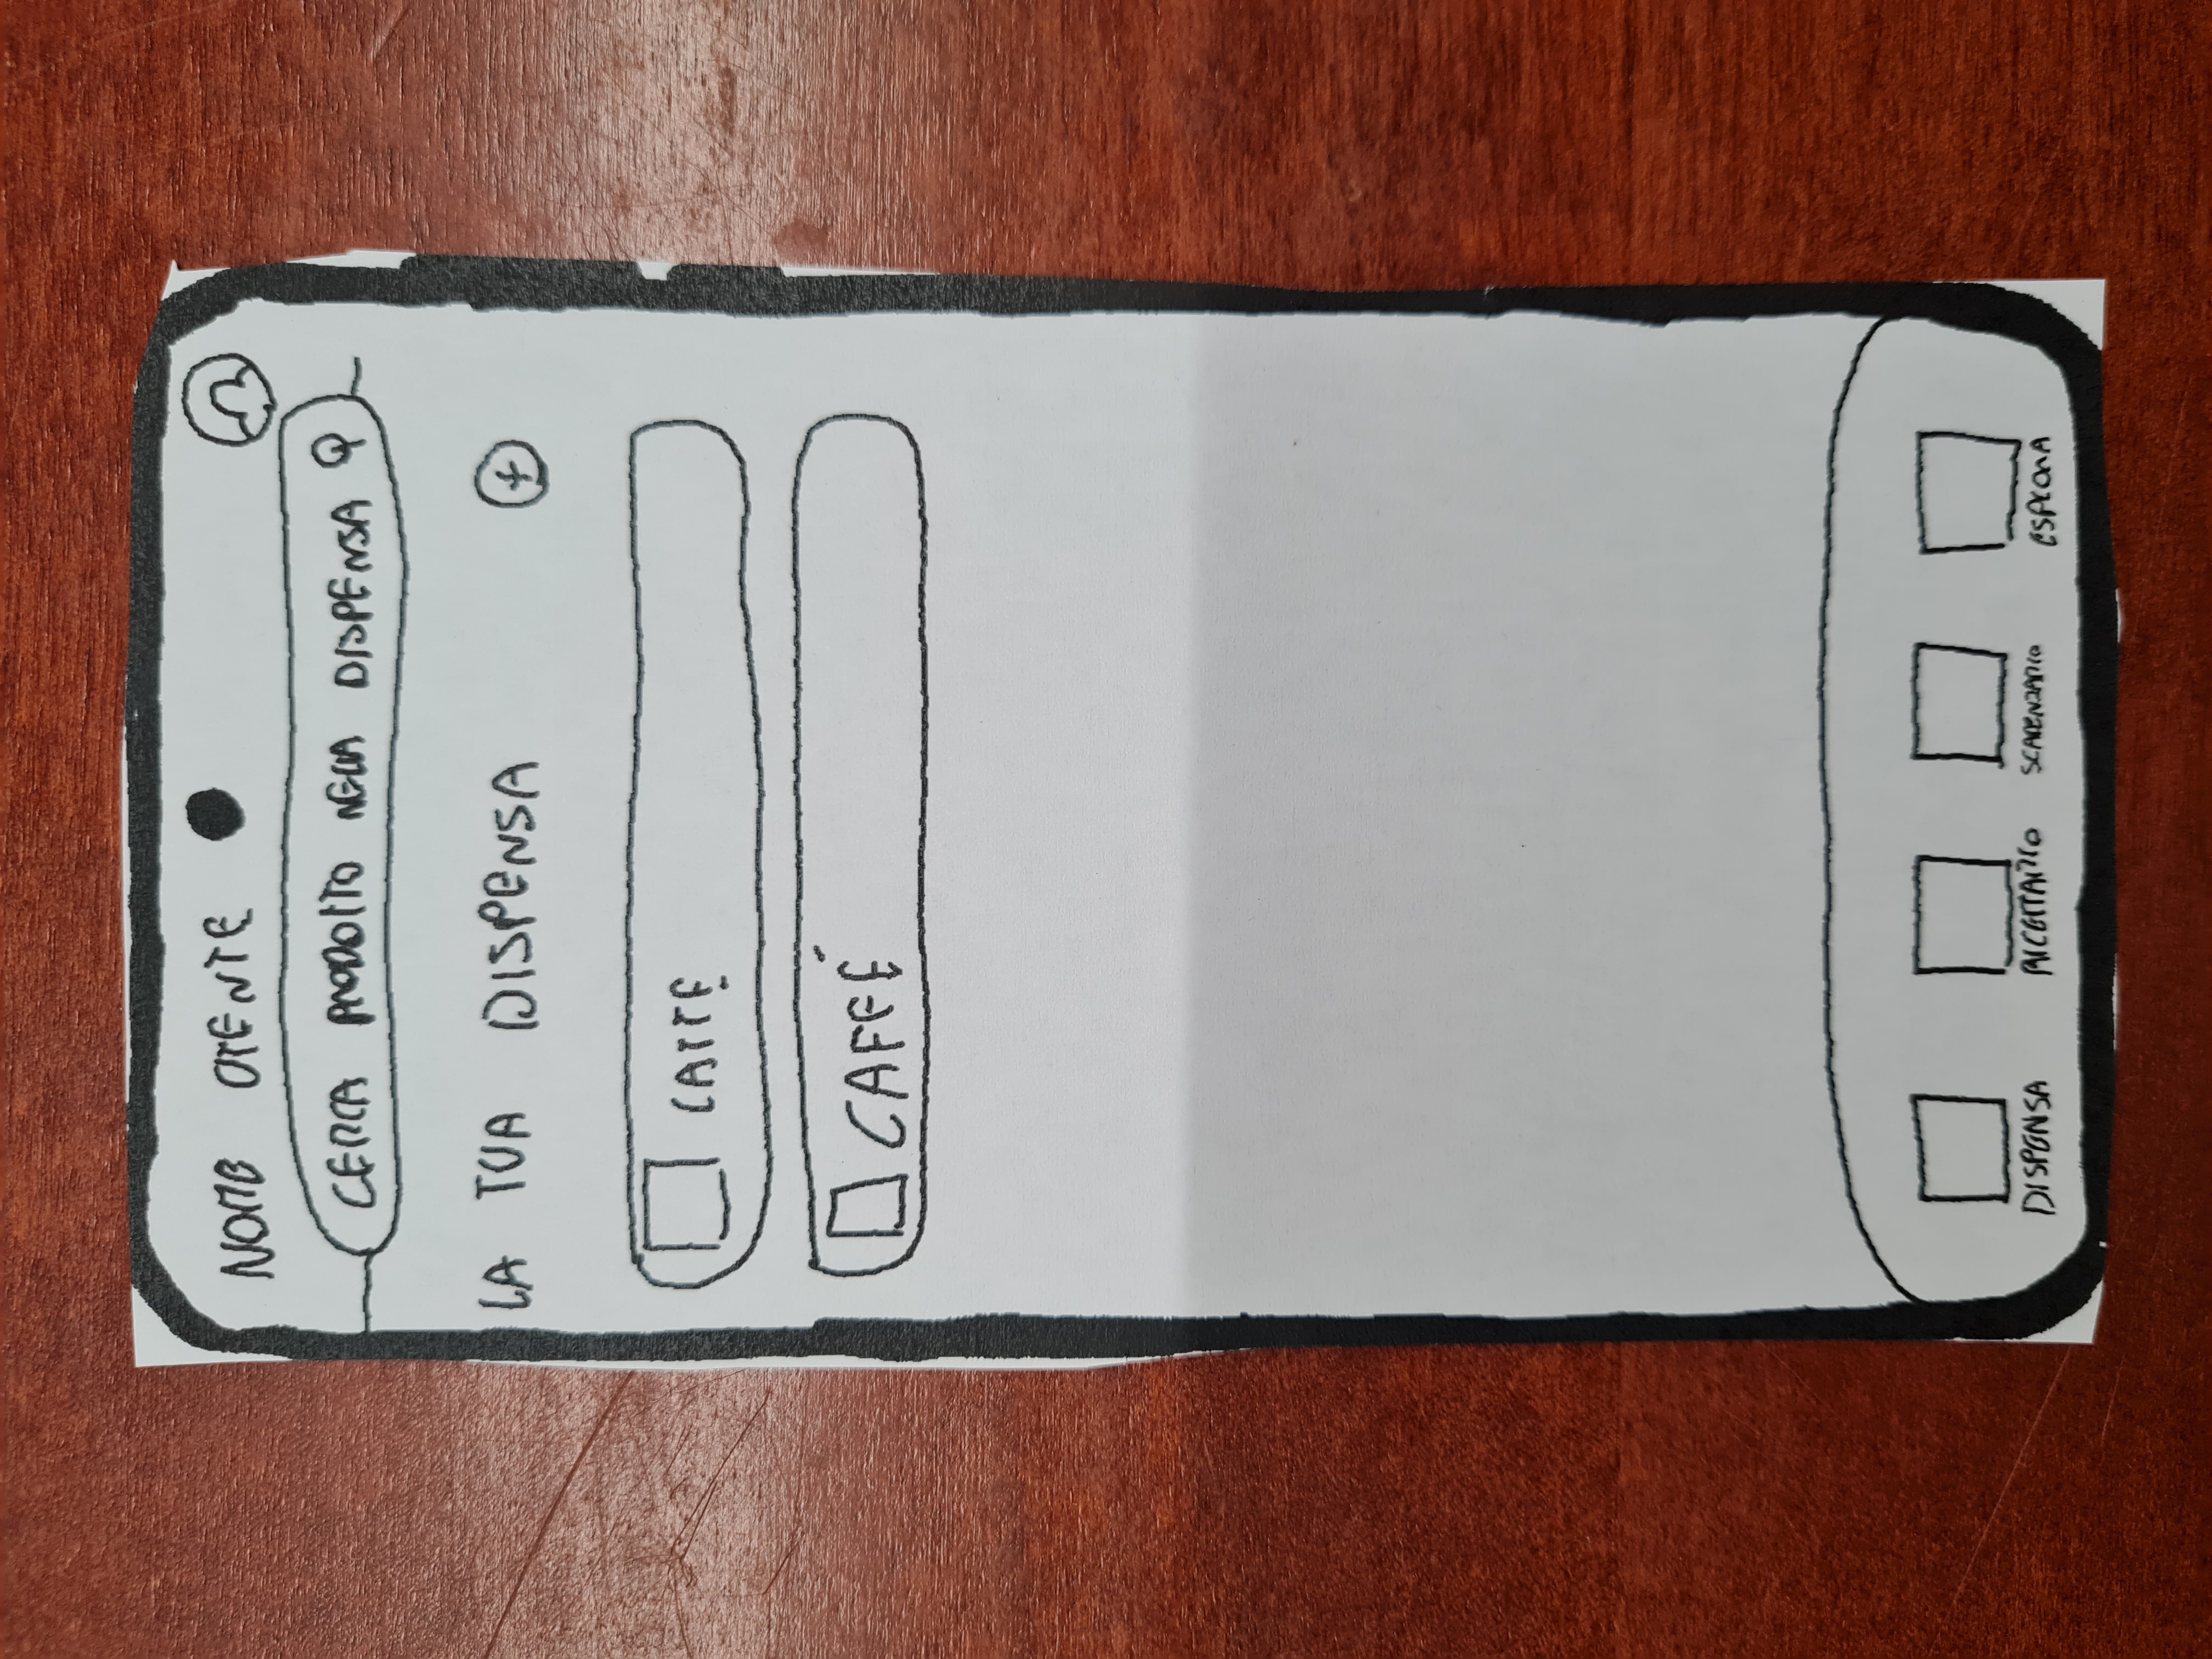 NOME UTENTE
CERCA PRODOTTO NELLA DISPENSA
LA TUA DISPENSA +
LATTE
CAFFÉ
DISPENSA RICETTARIO SCADENZARIO ESPLORA